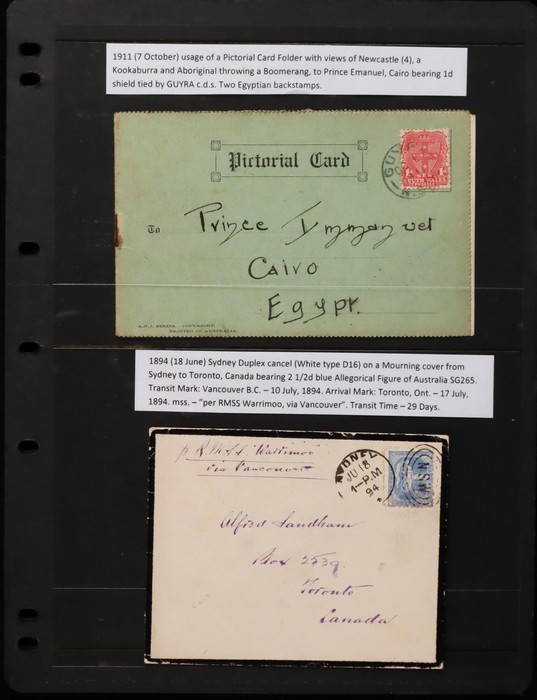 1911 (7 October) usage of a Pictorial Card Folder with views of Newcastle (4), a
Kookaburra and Aboriginal throwing a Boomerang, to Prince Emanuel, Cairo bearing 1d
shield tied by GUYRA c.d.s. Two Egyptian backstamps.
Pictorial Card
GUY
To
Prince Immanuel
Cairo
Egypt.
PRINTED IN AUSTRALIA.
1894 (18 June) Sydney Duplex cancel (White type D16) on a Mourning cover from
Sydney to Toronto, Canada bearing 2 1/2d blue Allegorical Figure of Australia SG265.
Transit Mark: Vancouver B.C. – 10 July, 1894. Arrival Mark: Toronto, Ont. – 17 July,
1894. mss. – "per RMSS Warrimoo, via Vancouver". Transit Time – 29 Days.
p R.M.S.S. Warrimoo
via Vancouver
SYDNEY
JU 18
1-P.M
94
NSW
Alfred Sandham
Box 2539.
Toronto
Canada